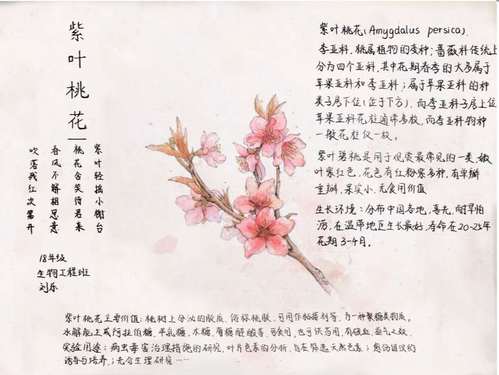 紫叶桃花
紫叶轻摇小榭台
桃花含笑待君来
春风不解相思意
吹落我红次第开
18年级
生物工程班
刘乐
紫叶桃花(Amygdalus persica)
李亚科、桃属植物的变种;蔷薇科传统上
分为四个亚科,其中花期春季的大多属于
苹果亚科和李亚科;属于苹果亚科的种
类子房下位(在下方),而李亚科子房上位
苹果亚科花柱通常多枚,而李亚科物种
一般花柱仅一枚。
紫叶碧桃是用于观赏最常见的一类,嫩
叶紫红色,花色有红粉紫多种,有单瓣
重瓣,果实小,无食用价值
生长环境:分布中国各地,喜光,耐旱怕
涝,在温带地区生长最好,寿命在20-25年
花期3-4月。
紫叶桃花主要价值:桃树上分泌的胶质,俗称桃胶,可用作粘接剂等,为一种聚糖类物质,
水解能生成阿拉伯糖、半乳糖、木糖、鼠李糖醛酸等,可食用,也可供药用,有破血、益气之效.
实验用途:病虫毒害治理措施的研究,叶片色素的分析,旨在筛选天然色素;愈伤组织的
诱导与培养;无舍生理研究……